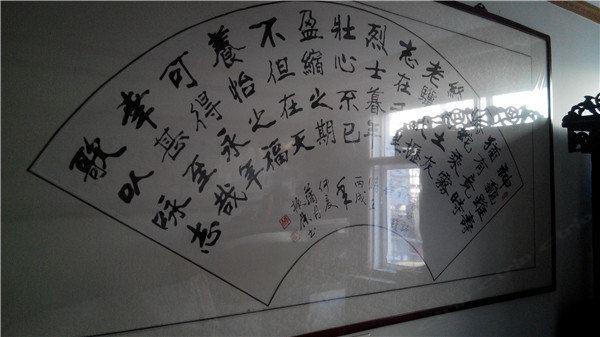 神龜雖壽
猶有竟時
蛇乘霧
土灰
老驥
志在
烈士暮年
壯心不已
盈縮之期
不但在天
養怡之福
可得永年
幸甚至哉
歌以咏志
丙戌